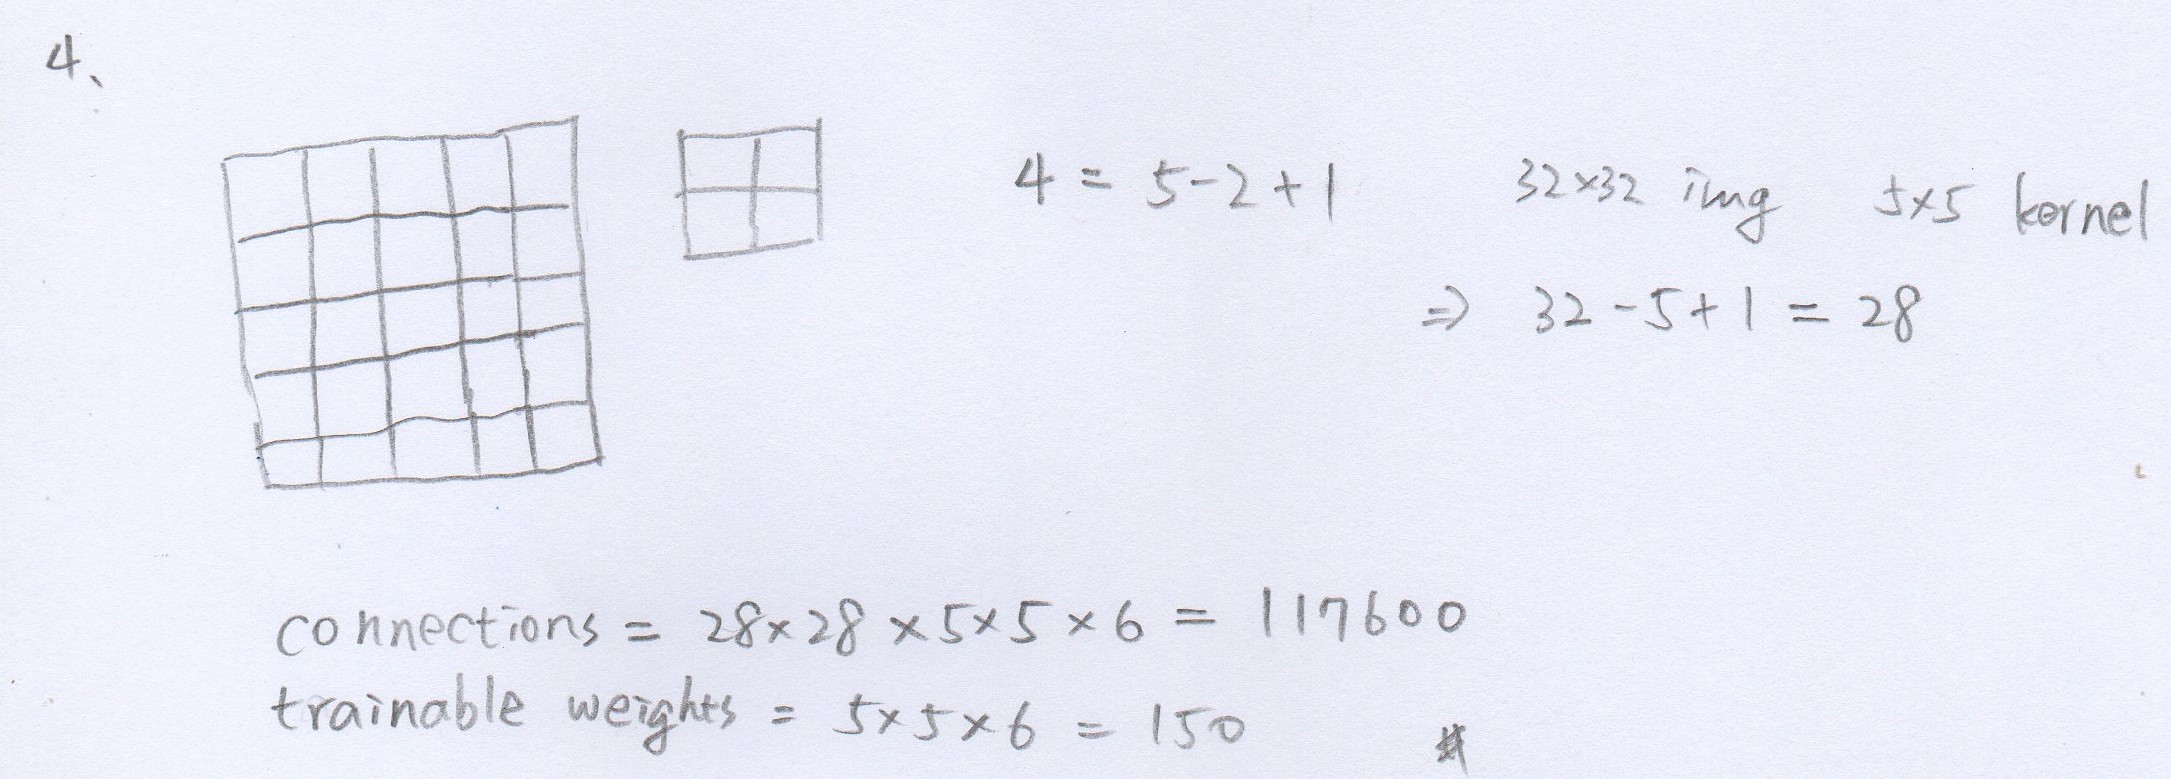 4、
4 = 5-2+1
32×32 img 5×5 kernel
⇒ 32-5+1 = 28
connections = 28×28×5×5×6 = 117600
trainable weights = 5×5×6 = 150 #